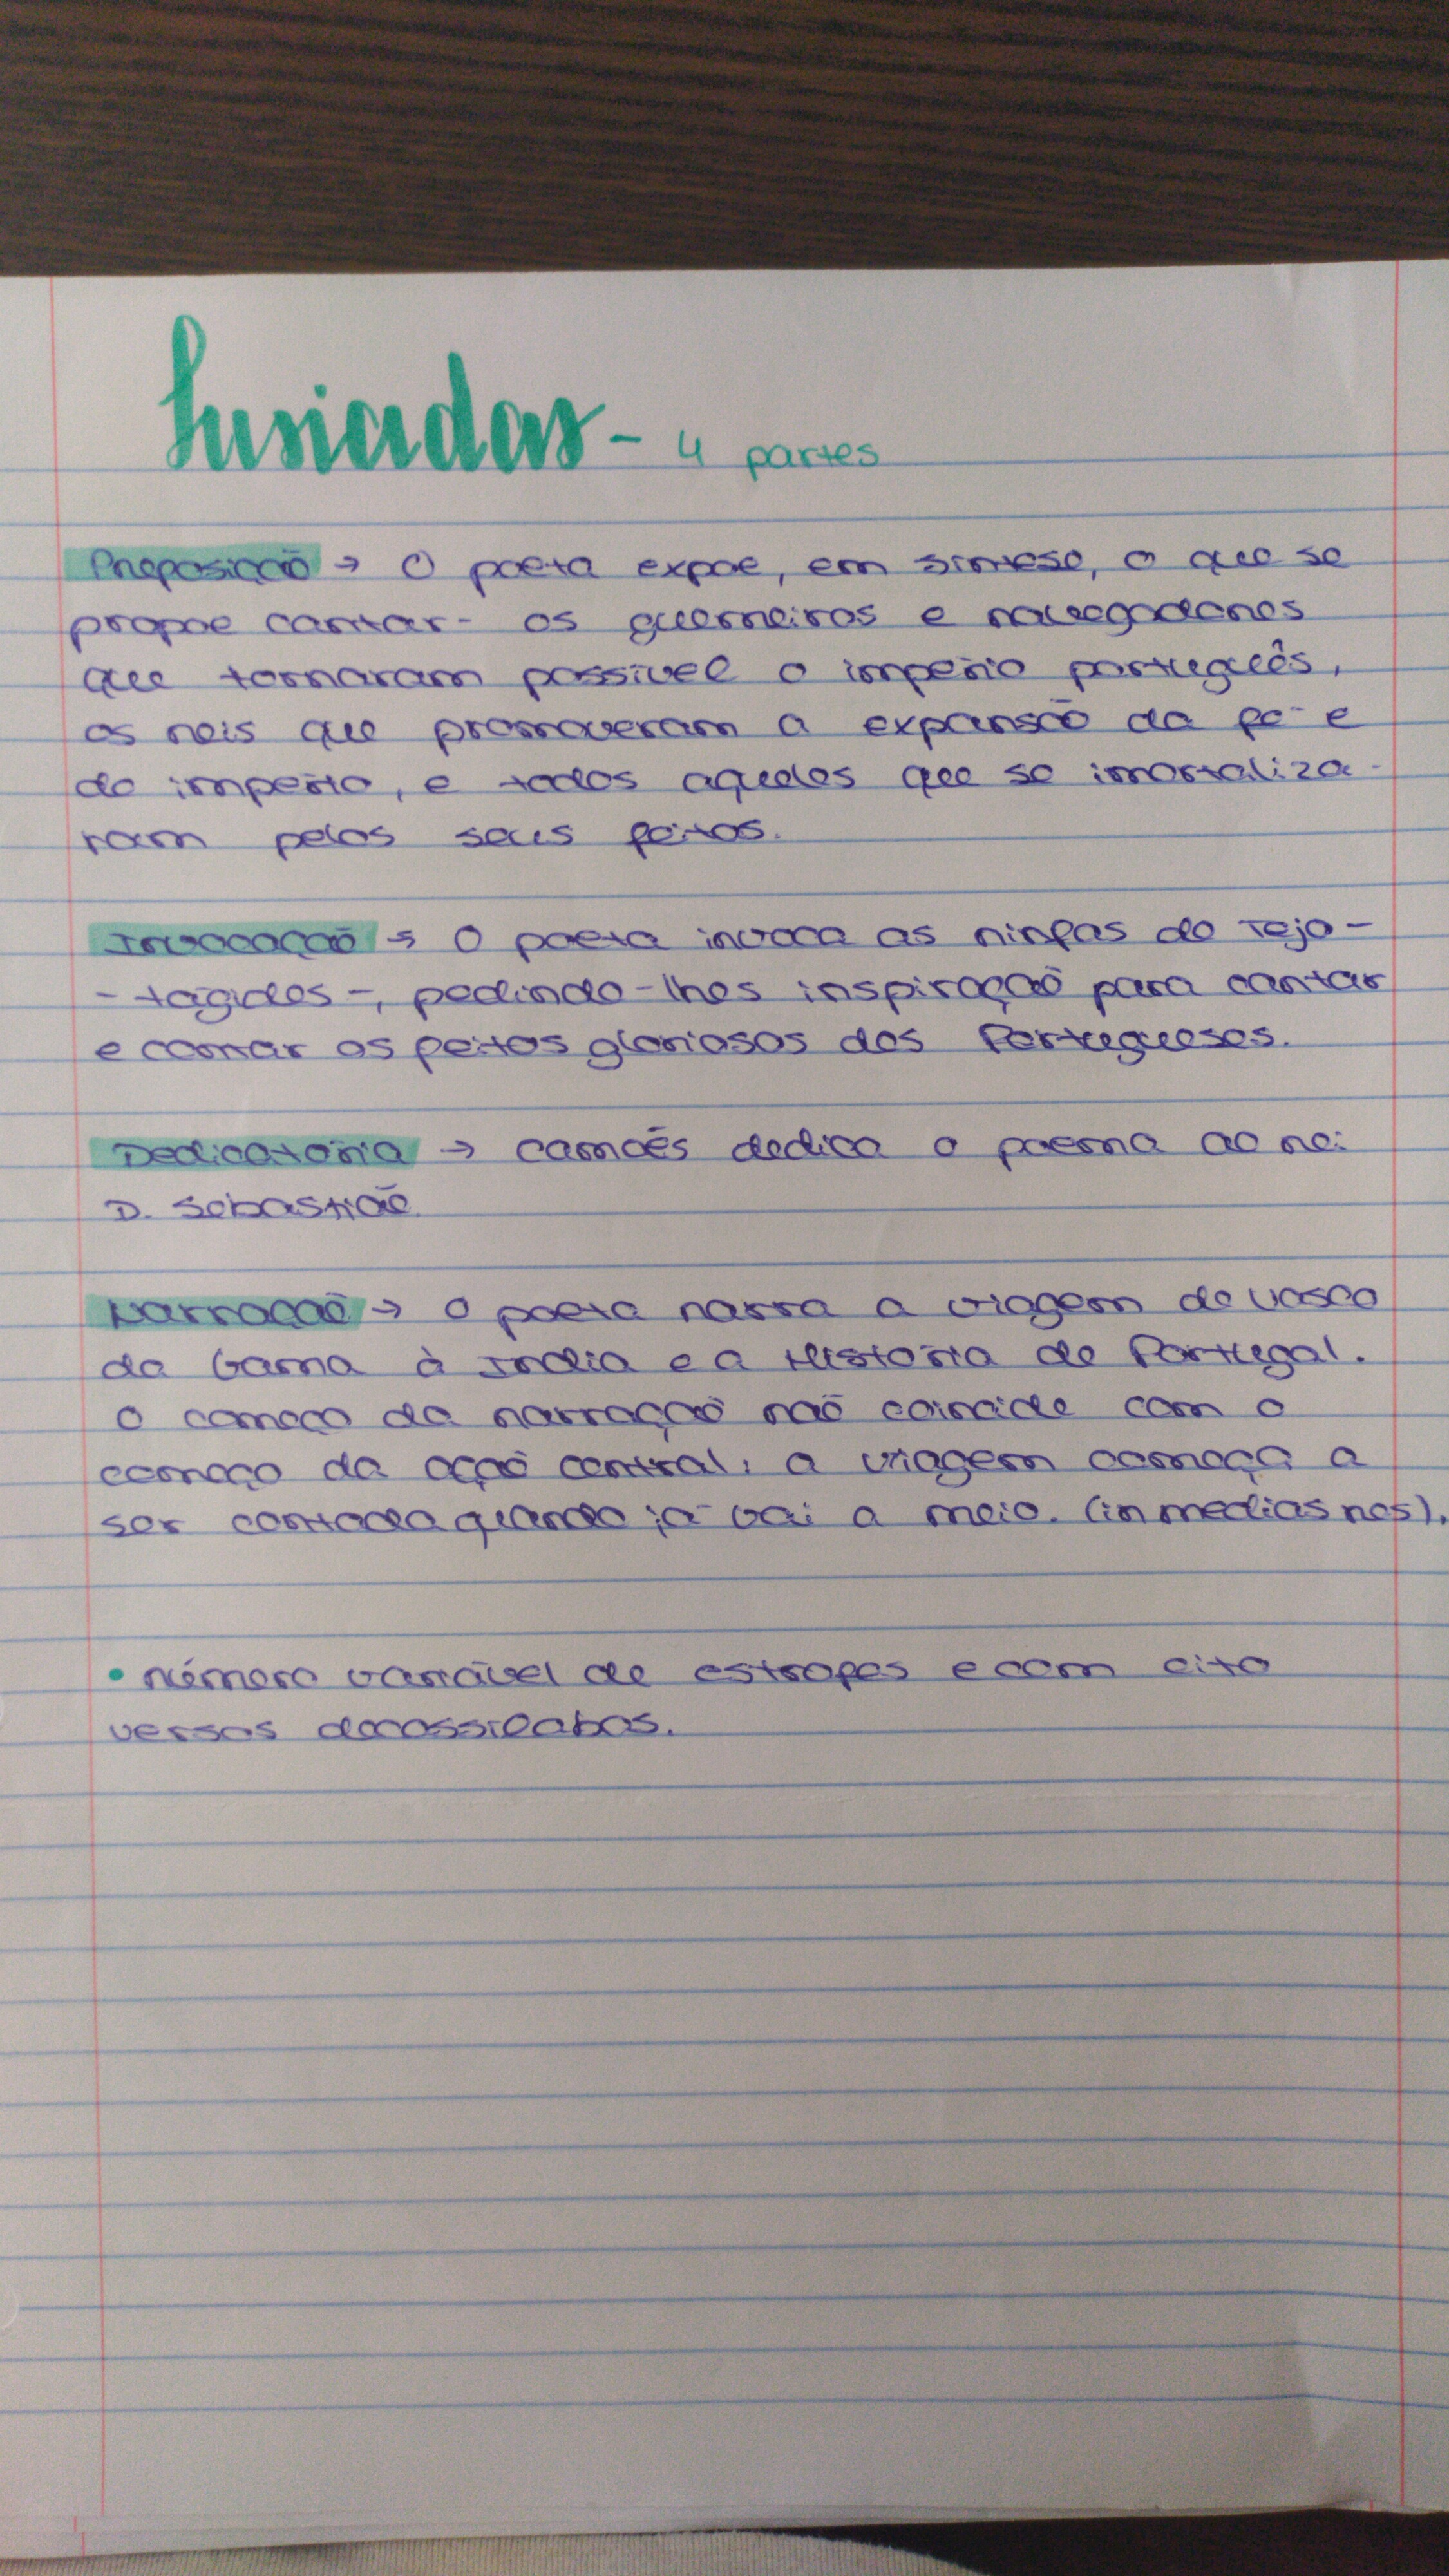 Lusiadas - 4 partes
Preposição → O poeta expoe, em síntese, o que se
propoe cantar - os guerreiros e navegadores
que tornaram possível o império português,
os reis que promoveram a expansão da fé e
do império, e todos aqueles que se imortaliza-
ram pelos seus feitos.
Invocação → O poeta invoca as ninfas do Tejo -
- tágides -, pedindo-lhes inspiração para cantar
e contar os feitos gloriosos dos Portugueses.
Dedicatória → Camões dedica o poema ao rei
D. Sebastião.
Narração → O poeta narra a viagem de Vasco
da Gama à India e a História de Portugal.
O começo da narração não coincide com o
começo da ação central: a viagem começa a
ser contada quando já vai a meio. (in medias res).
• Número variável de estrofes e com oito
versos decassílabos.